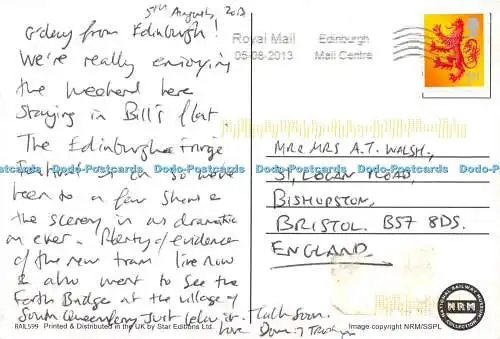 5th August, 2013
G'day from Edinburgh!
We're really enjoying
the weekend here
staying in Bill's flat.
The Edinburgh Fringe
Festival is on so we've
been to a few shows &
the scenery is as dramatic
as ever. Plenty of evidence
of the new tram line now
& also went to see the
Forth Bridge at the village of
South Queensferry just below it. Talk soon.
Love Dom
Royal Mail Edinburgh
05-08-2013 Mail Centre
1st
MR & MRS A.T. WALSH,
51, LOGAN ROAD,
BISHOPSTON,
BRISTOL. BS7 8DS.
ENGLAND
Dodo-Postcards Dodo-Postcards Dodo-Postcards Dodo-Postcards Dodo-Postcards
NATIONAL RAILWAY MUSEUM
NRM
COLLECTION
RAIL599 Printed & Distributed in the UK by Star Editions Ltd.
Image copyright NRM/SSPL